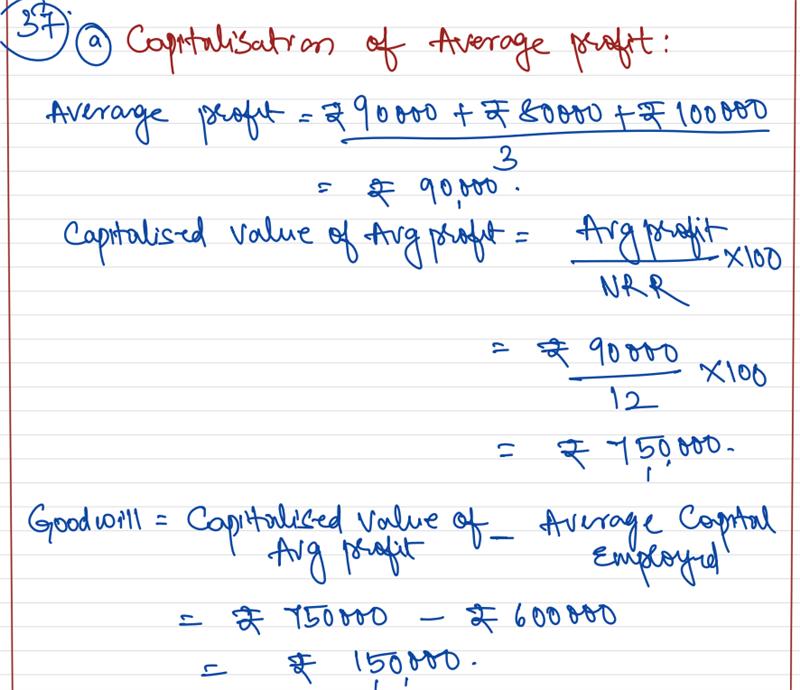 37 (a) Capitalisation of Average profit:
Average profit = ₹ 90000 + ₹ 80000 + ₹ 100000
3
= ₹ 90,000.
Capitalised value of Avg profit = Avg profit
NRR
×100
= ₹ 90000
12
×100
= ₹ 750,000.
Goodwill = Capitalised value of Avg profit – Average Capital Employed
= ₹ 750000 – ₹ 600000
= ₹ 150,000.